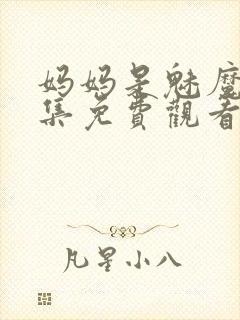 妈妈是魅魔
集免費觀看
凡星小八